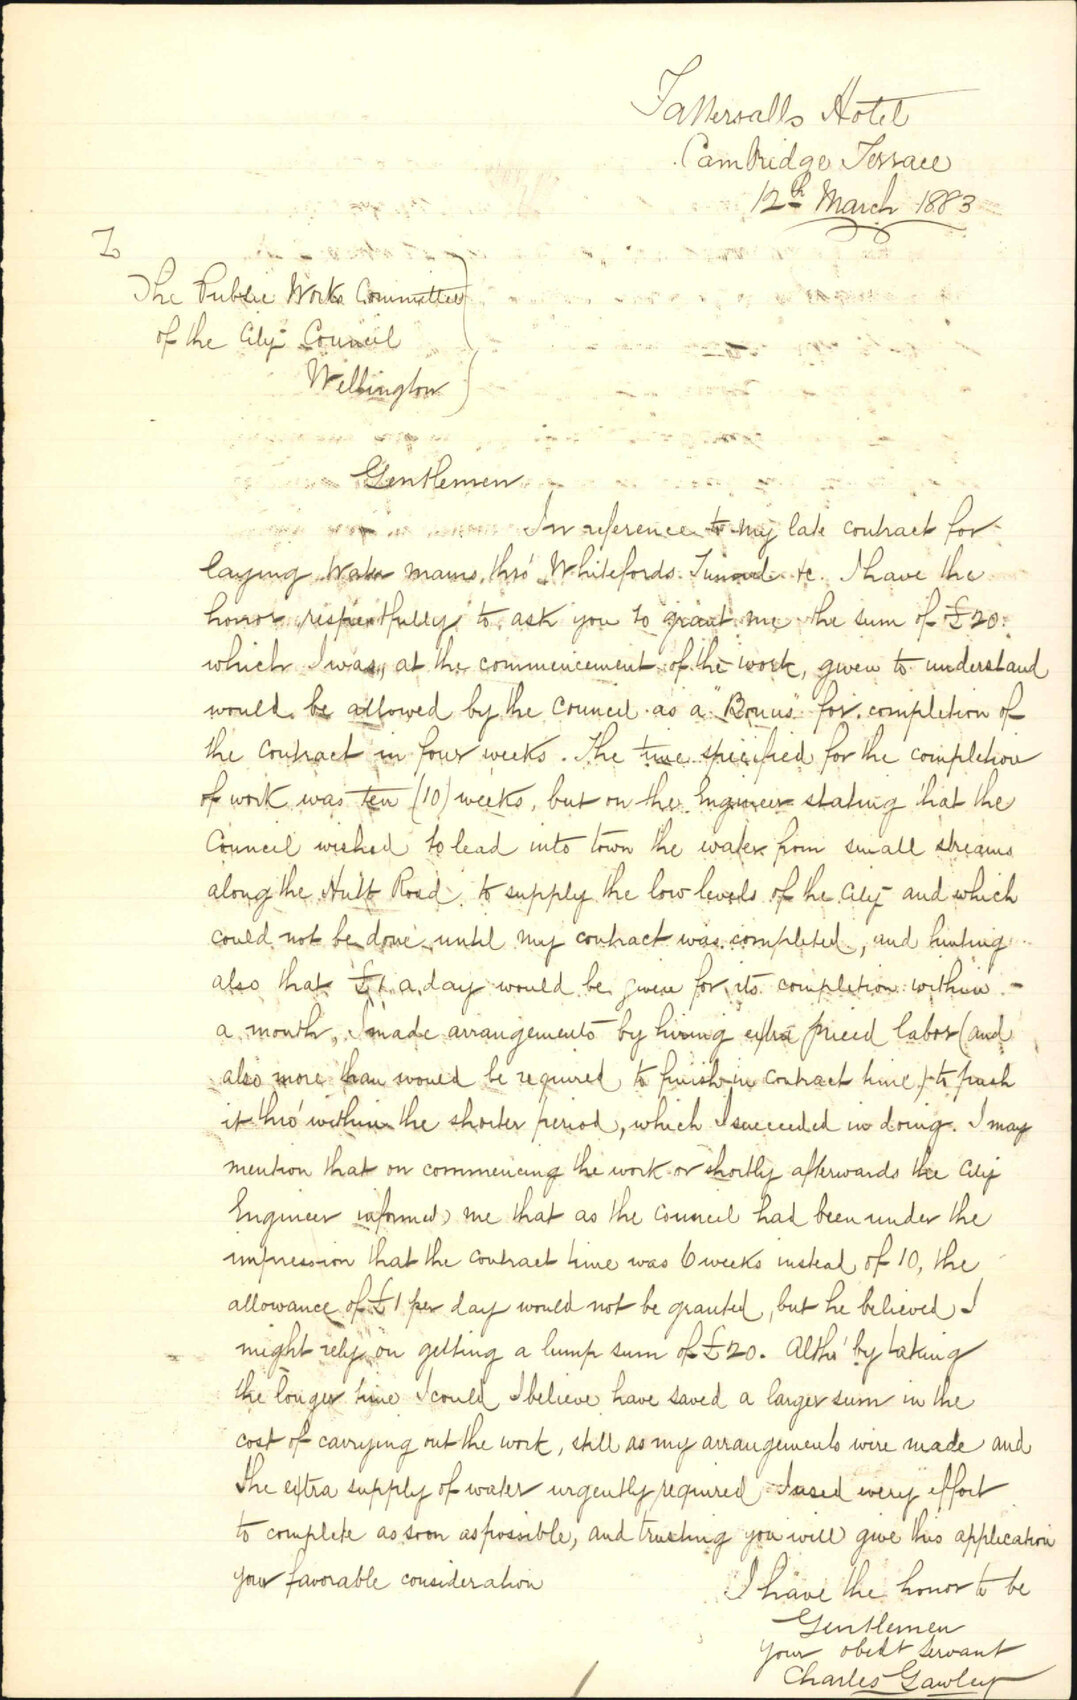 Tattersalls Hotel
Cambridge Terrace
12th March 1883
To
The Public Works Committee
of the City Council
Wellington
Gentlemen
In reference to my late contract for
laying Water mains thro' Whitefords Tunnel &c. I have the
honor respectfully to ask you to grant me the sum of £20.
which I was, at the commencement of the work, given to understand
would be allowed by the Council as a "Bonus" for completion of
the contract in four weeks. The time specified for the completion
of work was ten (10) weeks, but on the Engineer stating that the
Council wished to lead into town the water from small streams
along the Hutt Road to supply the low levels of the City and which
could not be done until my contract was completed, and hinting
also that £1 a day would be given for its completion within -
a month, I made arrangements by hiring extra priced labor (and
also more than would be required to finish in contract time) to push
it thro' within the shorter period, which I succeeded in doing. I may
mention that on commencing the work or shortly afterwards the City
Engineer informed me that as the Council had been under the
impression that the contract time was 6 weeks instead of 10, the
allowance of £1 per day would not be granted, but he believed I
might rely on getting a lump sum of £20. Altho' by taking
the longer time I could I believe have saved a larger sum in the
cost of carrying out the work, still as my arrangements were made and
the extra supply of water urgently required I used every effort
to complete as soon as possible, and trusting you will give this application
your favorable consideration
I have the honor to be
Gentlemen
Your obedt servant
Charles Gawley